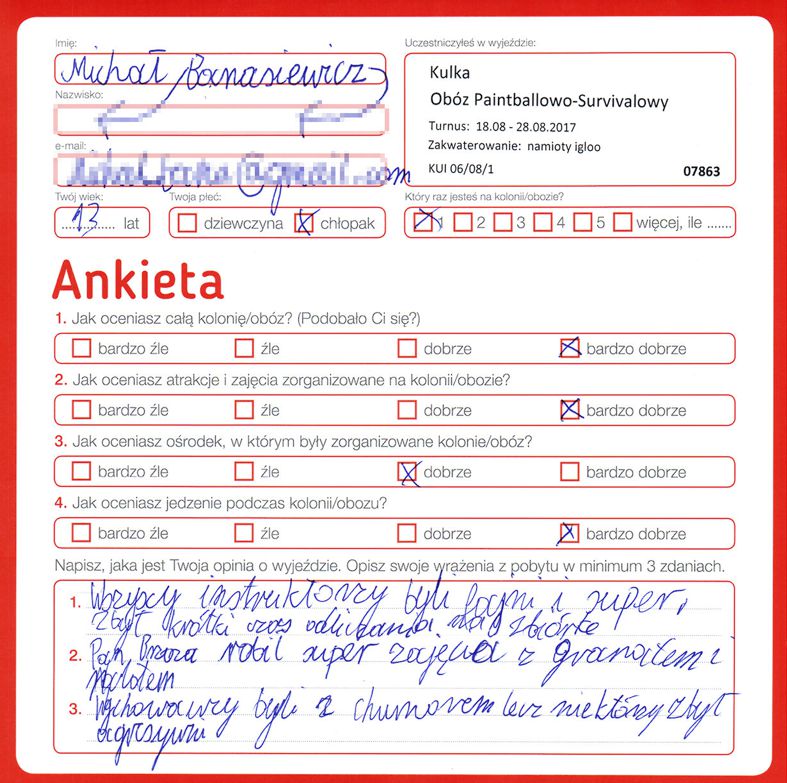 Imię:
Michał Banasiewicz
Nazwisko:
e-mail:
@gmail.com
Twój wiek:
13 lat
Twoja płeć:
dziewczyna chłopak
Uczestniczyłeś w wyjeździe:
Kulka
Obóz Paintballowo-Survivalowy
Turnus: 18.08 - 28.08.2017
Zakwaterowanie: namioty igloo
KUI 06/08/1 07863
Który raz jesteś na kolonii/obozie?
1 2 3 4 5 więcej, ile .......
Ankieta
1. Jak oceniasz całą kolonię/obóz? (Podobało Ci się?)
bardzo źle źle dobrze bardzo dobrze
2. Jak oceniasz atrakcje i zajęcia zorganizowane na kolonii/obozie?
bardzo źle źle dobrze bardzo dobrze
3. Jak oceniasz ośrodek, w którym były zorganizowane kolonie/obóz?
bardzo źle źle dobrze bardzo dobrze
4. Jak oceniasz jedzenie podczas kolonii/obozu?
bardzo źle źle dobrze bardzo dobrze
Napisz, jaka jest Twoja opinia o wyjeździe. Opisz swoje wrażenia z pobytu w minimum 3 zdaniach.
1. Wszyscy instruktorzy byli fajni i super,
zbyt krótki czas odliczania na zbiórke
2. Pan robił super zajęcia z granatem i
3. Wychowawcy byli z humorem lecz niektórzy zbyt